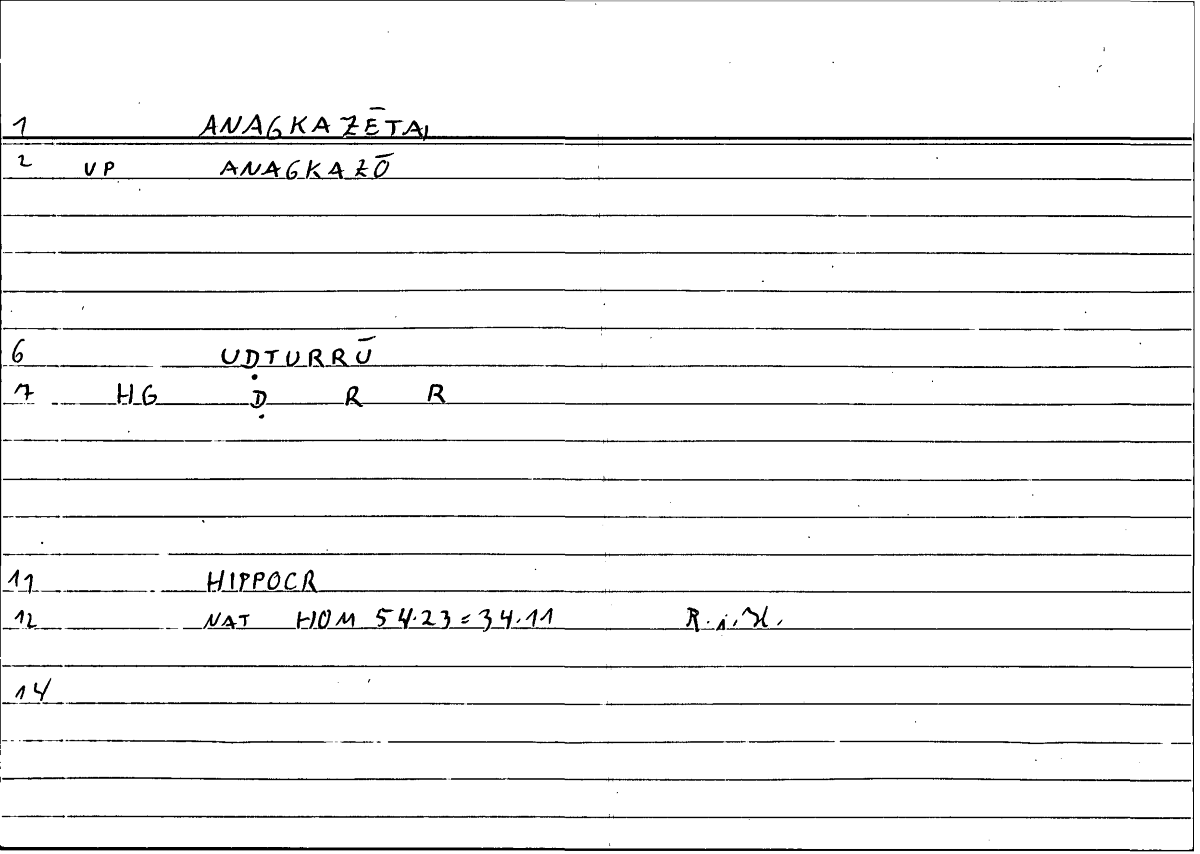 1 ANAGKAZĒTAI
2 VP ANAGKAZŌ
6 UḌTURRŪ
7 HG Ḍ R R
11 HIPPOCR
12 NAT HOM 54.23=34.11
14